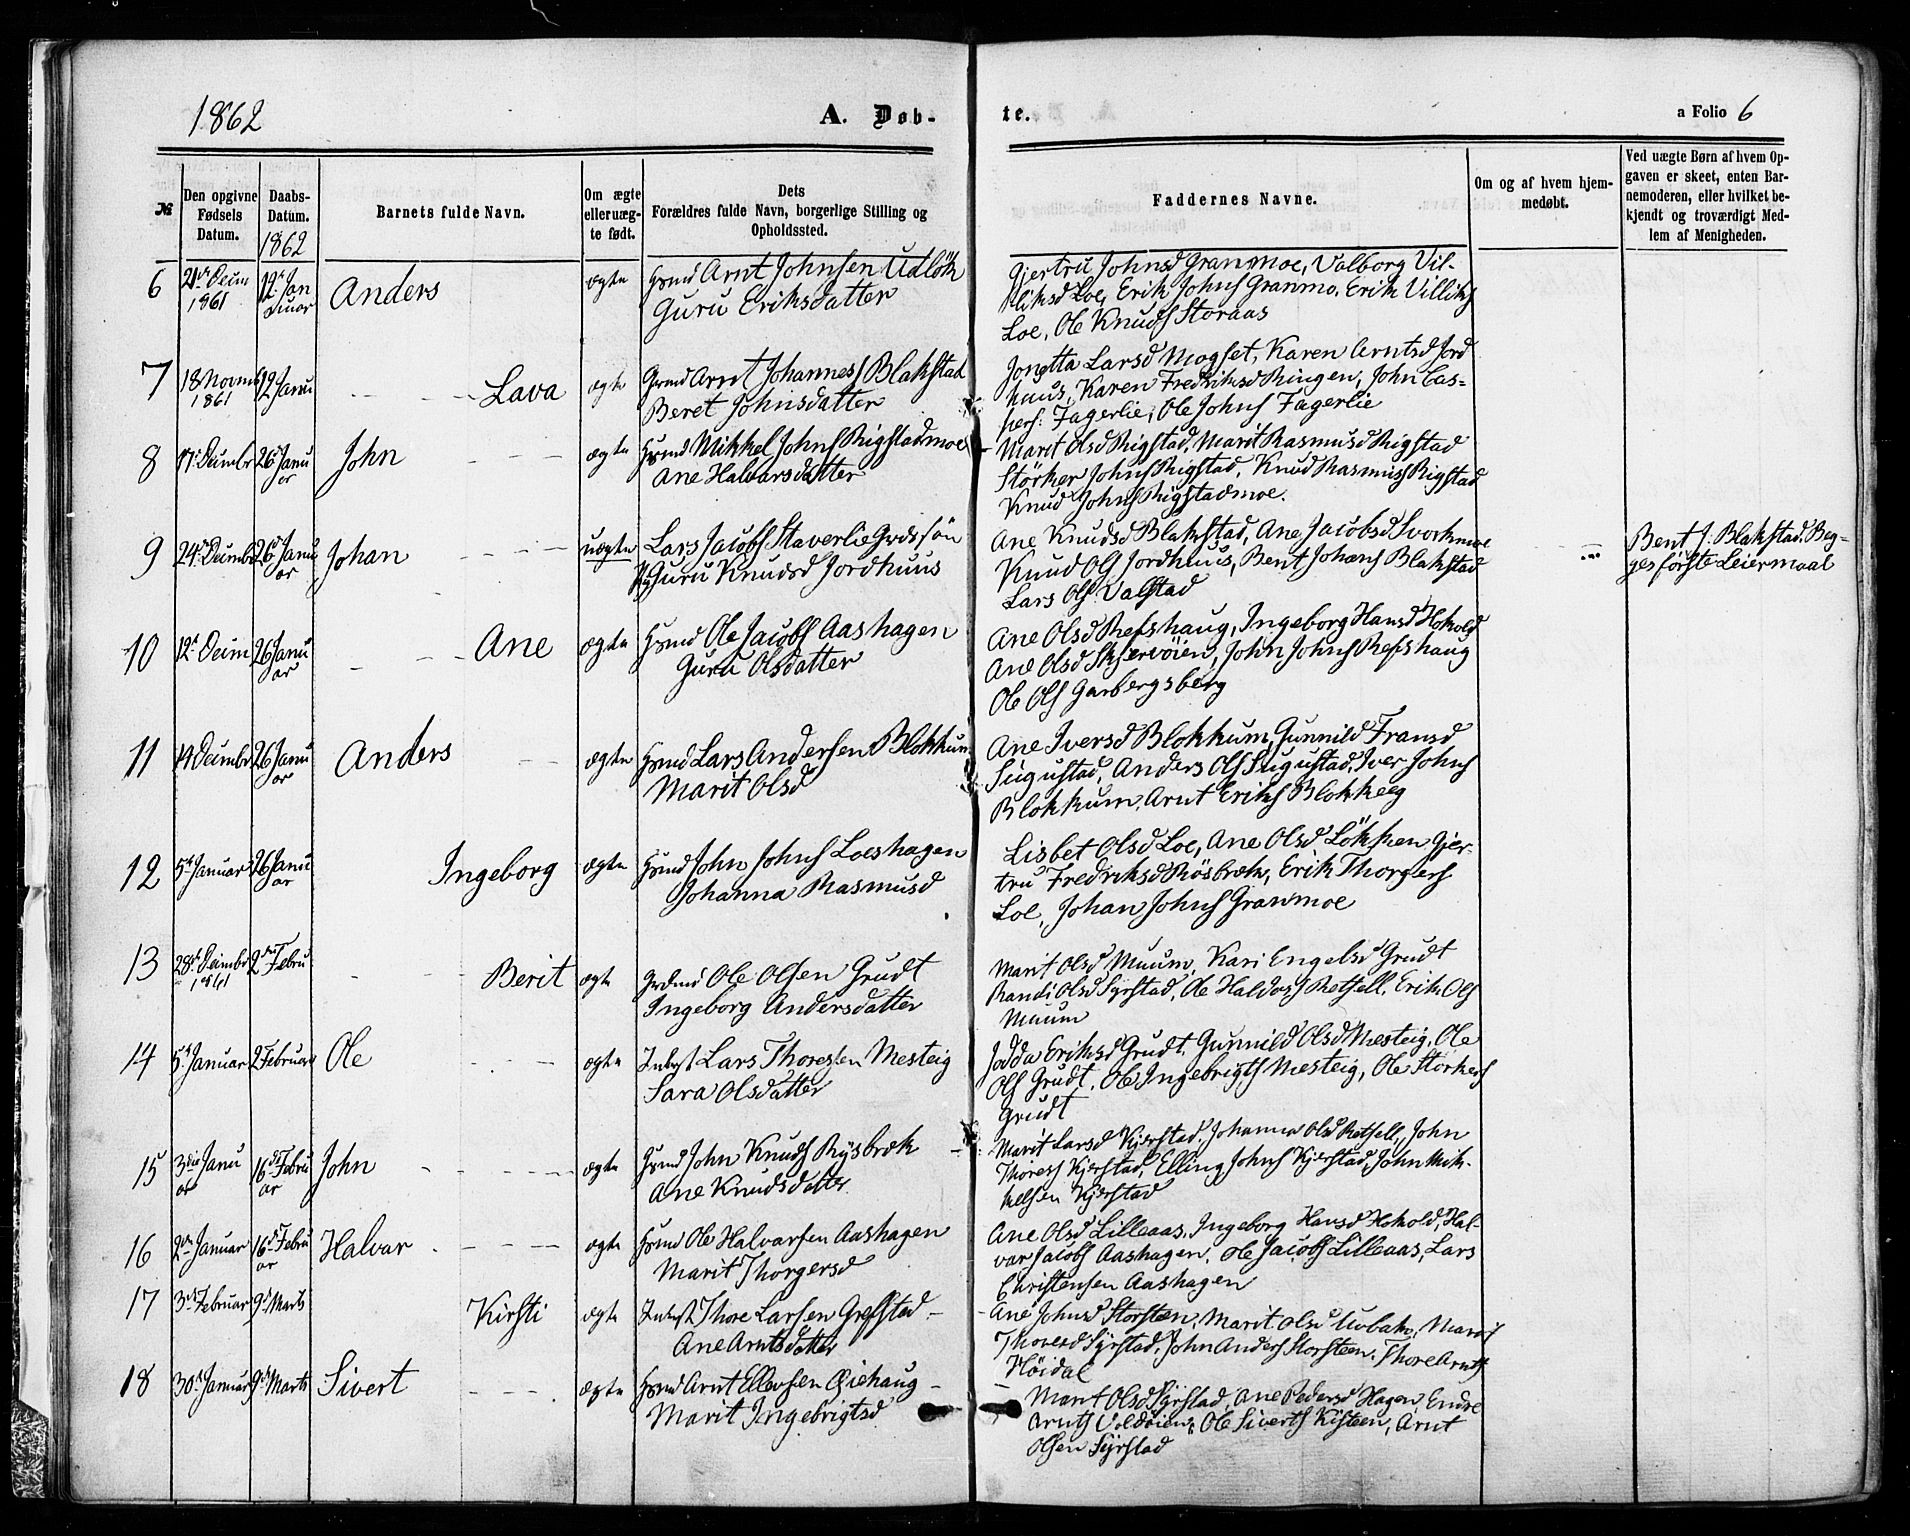 1862
A. Døb-
te.
a Folio 6
№
Den opgivne Fødsels Datum.
Daabs-Datum. 1862
Barnets fulde Navn.
Om ægte eller uægte født.
Dets Forældres fulde Navn, borgerlige Stilling og Opholdssted.
Faddernes Navne.
Om og af hvem hjemmedøbt.
Ved uægte Børn af hvem Opgaven er skeet, enten Barnemoderen, eller hvilket bekjendt og troværdigt Medlem af Menigheden.
6 21de Decim 1861 12te Januar Anders ægte Hsmd Arnt Johnsen Udlök
Guru Eriksdatter
Gjertru Johnsd Granmoe, Valborg Vil-
liksd Loe, Erik Johns Granmo. Erik Villiks
Loe, Ole Knuds Storaas
7 18 Novmb 1861 12 Janu Lava ægte Grmd Arnt Johannes Blakstad
Beret Johnsdatter
Jonetta Larsd Mogset, Karen Arntsd Jord
huus, Karen Fredriksd Ringen, John Cas-
pers: Fagerlie, Ole Johns Fagerlie
8 17 Decimbr 26 Januar John ægte Hsmd Mikkel Johns Rigstadmoe
Ane Halvarsdatter
Marit Olsd Rigstad, Marit Rasmusd Rigstad
Störker Johns Rigstad, Knud Rasmus Rigstad
Knud Johns Rigstadmoe.
9 24 Decimbr 26 Januar Johan uægte Lars Jacobs Staverlie Grdssön
Pg Guru Knudsd Jordhuus
Ane Knudsd Blakstad, Ane Jacobsd Svorkmoe
Knud Ols Jordhuus, Bent Johans Blakstad
Lars Ols Valstad
Bent J: Blakstad. Beg-
ges første Leiermaal
10 12 Decim 26 Januar Ane ægte Hsmd Ole Jacobs Aashagen
Guru Olsdatter
Ane Olsd Refshaug, Ingeborg Hansd Hokold
Ane Olsd Skjervöien, John Johns Refshaug
Ole Ols Garbergsberg
11 14 Decimbr 26 Januar Anders ægte Hsmd Lars Andersen Blokkum
Marit Olsd
Ane Iversd Blokkum, Gunnild Fransd
Sugustad, Anders Ols Sugustad, Iver Johns
Blokkum, Arnt Eriks Blokkeeg
12 5te Januar 26 Januar Ingeborg ægte Hsmd John Johns Loeshagen
Johanna Rasmusd
Lisbet Olsd Loe, Ane Olsd Lökken Gjer-
tru Fredriksd Rösbræk, Erik Thorgers
Loe, Johan Johns Granmoe
13 28de Decimbr 1861 2den Febru Berit ægte Grdmd Ole Olsen Grudt
Ingeborg Andersdatter
Marit Olsd Muum, Kari Engelsd Grudt
Randi Olsd Syrstad, Ole Haldors Retsell, Erik Ols
Muum
14 5te Januar 2 Februar Ole ægte Inderst Lars Thoressen Mesteig
Sara Olsdatter
Jodda Eriksd Grudt, Gunnild Olsd Mesteig, Ole
Ols Grudt, Ole Ingebrigts Mesteig, Ole Störkers
Grudt
15 3die Januar 16de Februar John ægte Hsmd John Knuds Rysbræk
Ane Knudsdatter
Marit Larsd Kjerstad, Johanna Olsd Retsell, John
Thoress Kjerstad, Elling Johns Kjerstad, John Mik-
kelsen Kjerstad
16 2den Januar 16de Februar Halvar ægte Hsmd Ole Halvarsen Aashagen
Marit Thorgersd
Ane Olsd Lilleaas, Ingeborg Hansd Hokold, Hal-
var Jacobs Aashagen, Ole Jacobs Lilleaas, Lars
Christensen Aashagen
17 3de Februar 9de Marts Kirsti ægte Inderst Thore Larsen Grefstad
Ane Arntsdatter
Ane Johnsd Storsteen, Marit Olsd Uvbak, Marit
Thoresd Syrstad, John Anders Storsteen, Thore Arnts
Höidal
18 30 Januar 9de Marts Sivert ægte Hsmd Arnt Ellevsen Qiehaug
Marit Ingebrigtsd
Marit Olsd Syrstad, Ane Pedersd Hagen, Endre
Arnts Voldöien, Ole Siverts Kisteen, Arnt
Olsen Syrstad